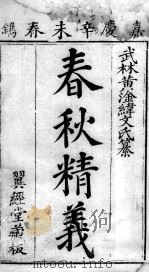 嘉慶辛未春鐫
武林黃淦緯文氏纂
春秋精義
翼經堂藏板